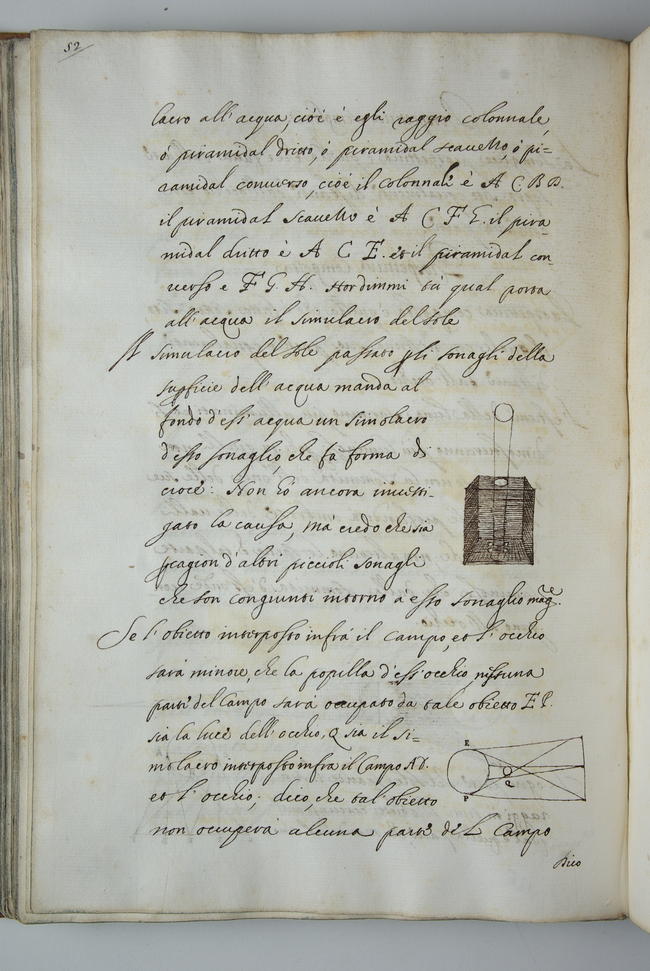 52
lacro all'acqua, cioè è egli raggio colonnale,
ò piramidal dritto, ò piramidal scavetto, ò pi=
ramidal converso, cioè il colonnale è A C B D.
il piramidal scavetto è A C F E. il pira=
midal dritto è A C E. et il piramidal con=
verso e F G H. Hordimmi tù qual porta
all'acqua il simulacro del sole
Il simulacro del sole passato p li sonagli della
supficie dell'acqua manda al
fondo d'essi acqua un simolacro
d'esso sonaglio, che fa forma di
croce: Non hò ancora investi=
gato la causa, mà credo che sia
p cagion d'altri piccioli sonagli
che son congiunti intorno a esso sonaglio mag.re
Se l'obietto interposto infrà il campo, et l'occhio
sarà minore, che la popilla d'ess'occhio, nissuna
parte del Campo sarà occupato da tale obietto E P.
sia la luce dell'occhio, Q sia il si=
molacro interposto infra il Campo A D.
et l'occhio; dico, che tal'obietto
non occuperà alcuna parte del Campo
Dico
E
Q
P